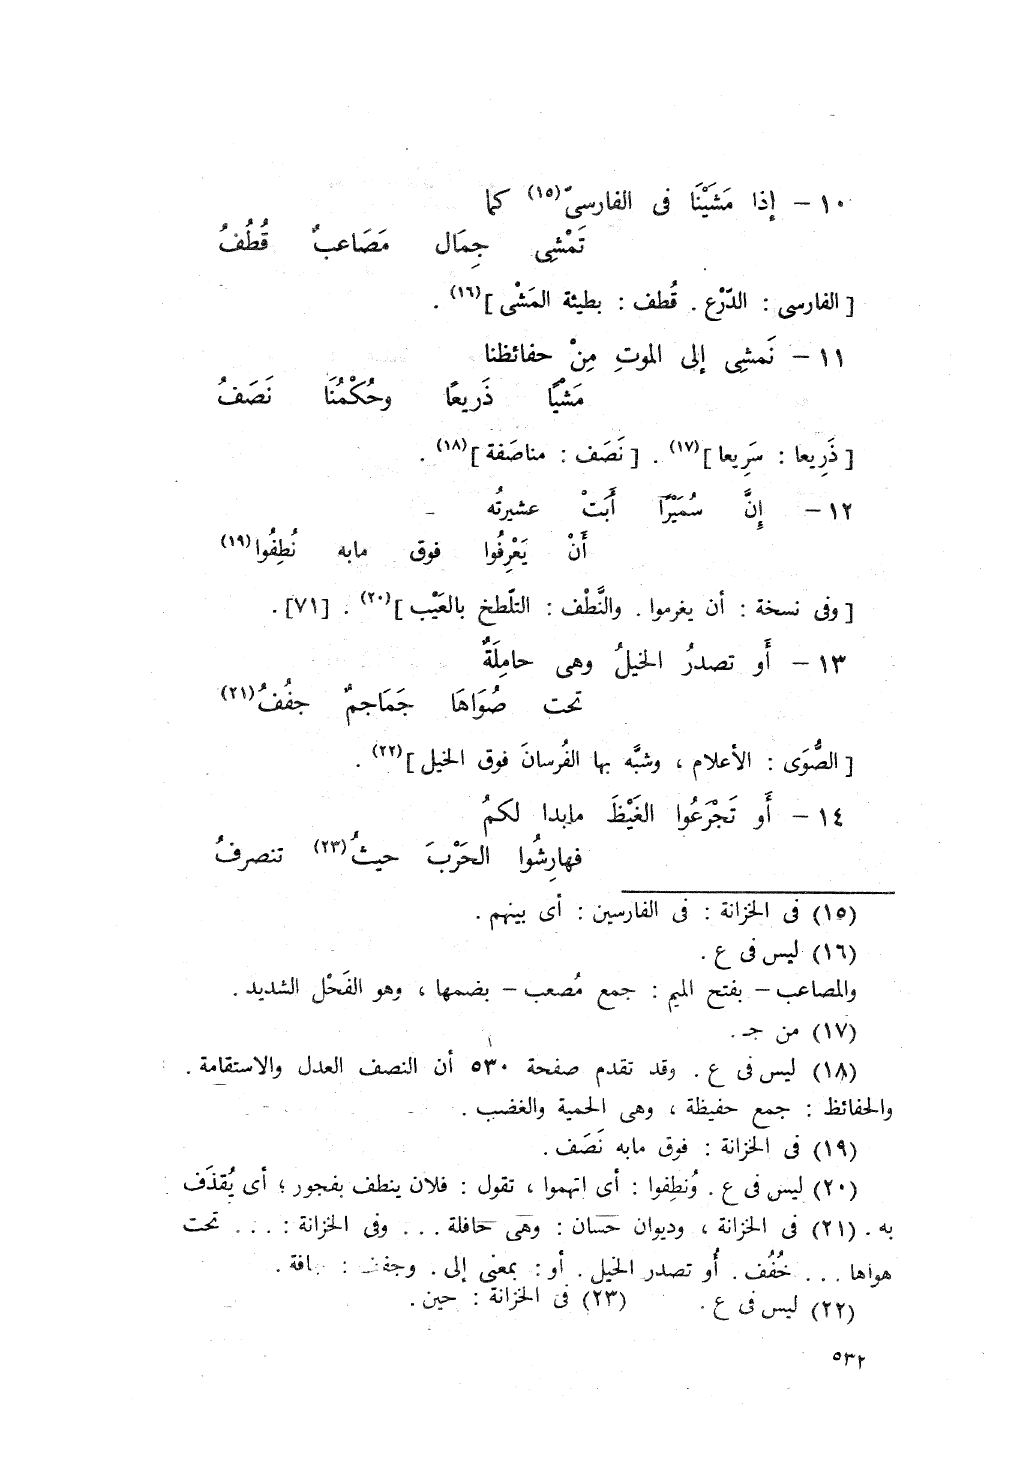 ١٠ – إذا مَشَيْنَا فى الفارسىّ (١٥) كما
تَمْشِى جِمَال مَصَاعبٌ قُطُفُ
[ الفارسى : الدّرْع . قُطف : بطيئة المَشْى ] (١٦) .
١١ – نَمشِى إلى الموتِ مِنْ حفائظنا
مَشْيًا ذَريعًا وحُكْمُنَا نَصَفُ
[ ذَرِيعا : سَرِيعا ] (١٧) . [ نَصَف : مناصَفة ] (١٨) .
١٢ – إِنَّ سُمَيْرًا أَبَتْ عشيرتُه
أَنْ يَعْرِفُوا فوق مابه نُطِفُوا (١٩)
[ وفى نسخة : أن يغرموا . والنَّطْف : التلّطخ بالعَيْب ] (٢٠) . [٧١] .
١٣ – أَو تصدرُ الخيلُ وهى حامِلَةٌ
تحت صُوَاهَا جَمَاجمٌ جفُفُ (٢١)
[ الصُّوَى : الأعلام ، وشبَّه بها الفُرسانَ فوق الخيل ] (٢٢) .
١٤ – أَو تَجْرَعُوا الغَيْظَ مابدا لكمُ
فهارِشُوا الحَرْبَ حيثُ (٢٣) تنصرفُ
(١٥) فى الخزانة : فى الفارسين : أى بينهم .
(١٦) ليس فى ع .
والمصاعب – بفتح الميم : جمع مُصعب – بضمها ، وهو الفَحْل الشديد .
(١٧) من جـ .
(١٨) ليس فى ع . وقد تقدم صفحة ٥٣٠ أن النصف العدل والاستقامة .
والحفائظ : جمع حفيظة ، وهى الحمية والغضب .
(١٩) فى الخزانة : فوق مابه نَصَف .
(٢٠) ليس فى ع . وُنطِفوا : أى اتهموا ، تقول : فلان ينطف بفجور ؛ أى يُقذَف
به . (٢١) فى الخزانة ، وديوان حسان : وهى حافلة . . . وفى الخزانة : . . . تحت
هواها . . . خُفُف . أو تصدر الخيل . أو : بمعنى إلى . وجفف :
(٢٢) ليس فى ع . (٢٣) فى الخزانة : حين .
٥٣٢